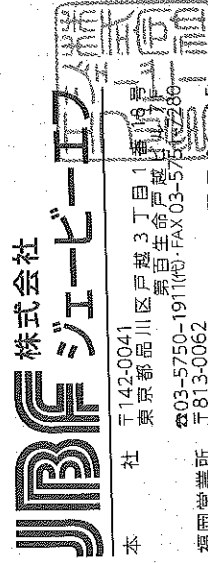 JBF 株式会社
ジェービーエフ
本社 〒142-0041
東京都品川区戸越3丁目1番18号
第百生命戸越ビル
☎03-5750-1911(代)・FAX 03-5751-7280
福岡営業所 〒813-0062